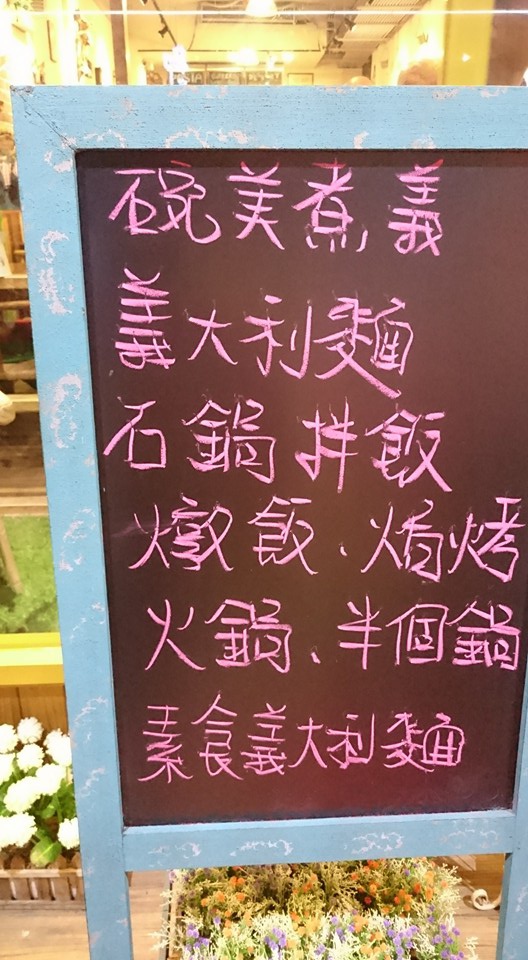 碗美煮義
義大利麵
石鍋拌飯
燉飯、焗烤
火鍋、半個鍋
素食義大利麵